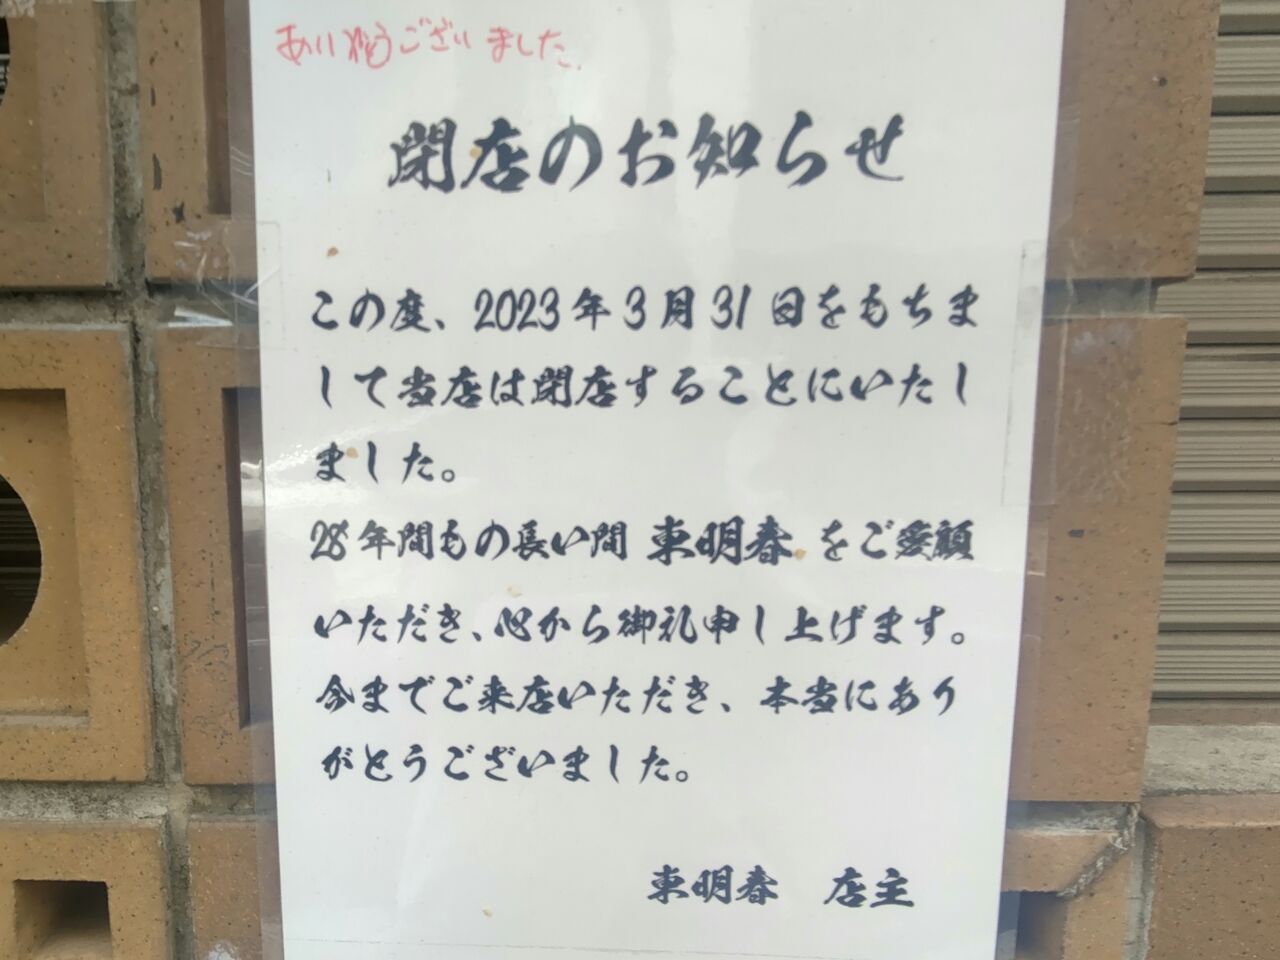 ありがとうございました.
閉店のお知らせ
この度、2023年3月31日をもちま
して当店は閉店することにいたし
ました。
28年間もの長い間 東明春 をご愛顧
いただき、心から御礼申し上げます。
今までご来店いただき、本当にあり
がとうございました。
東明春 店主